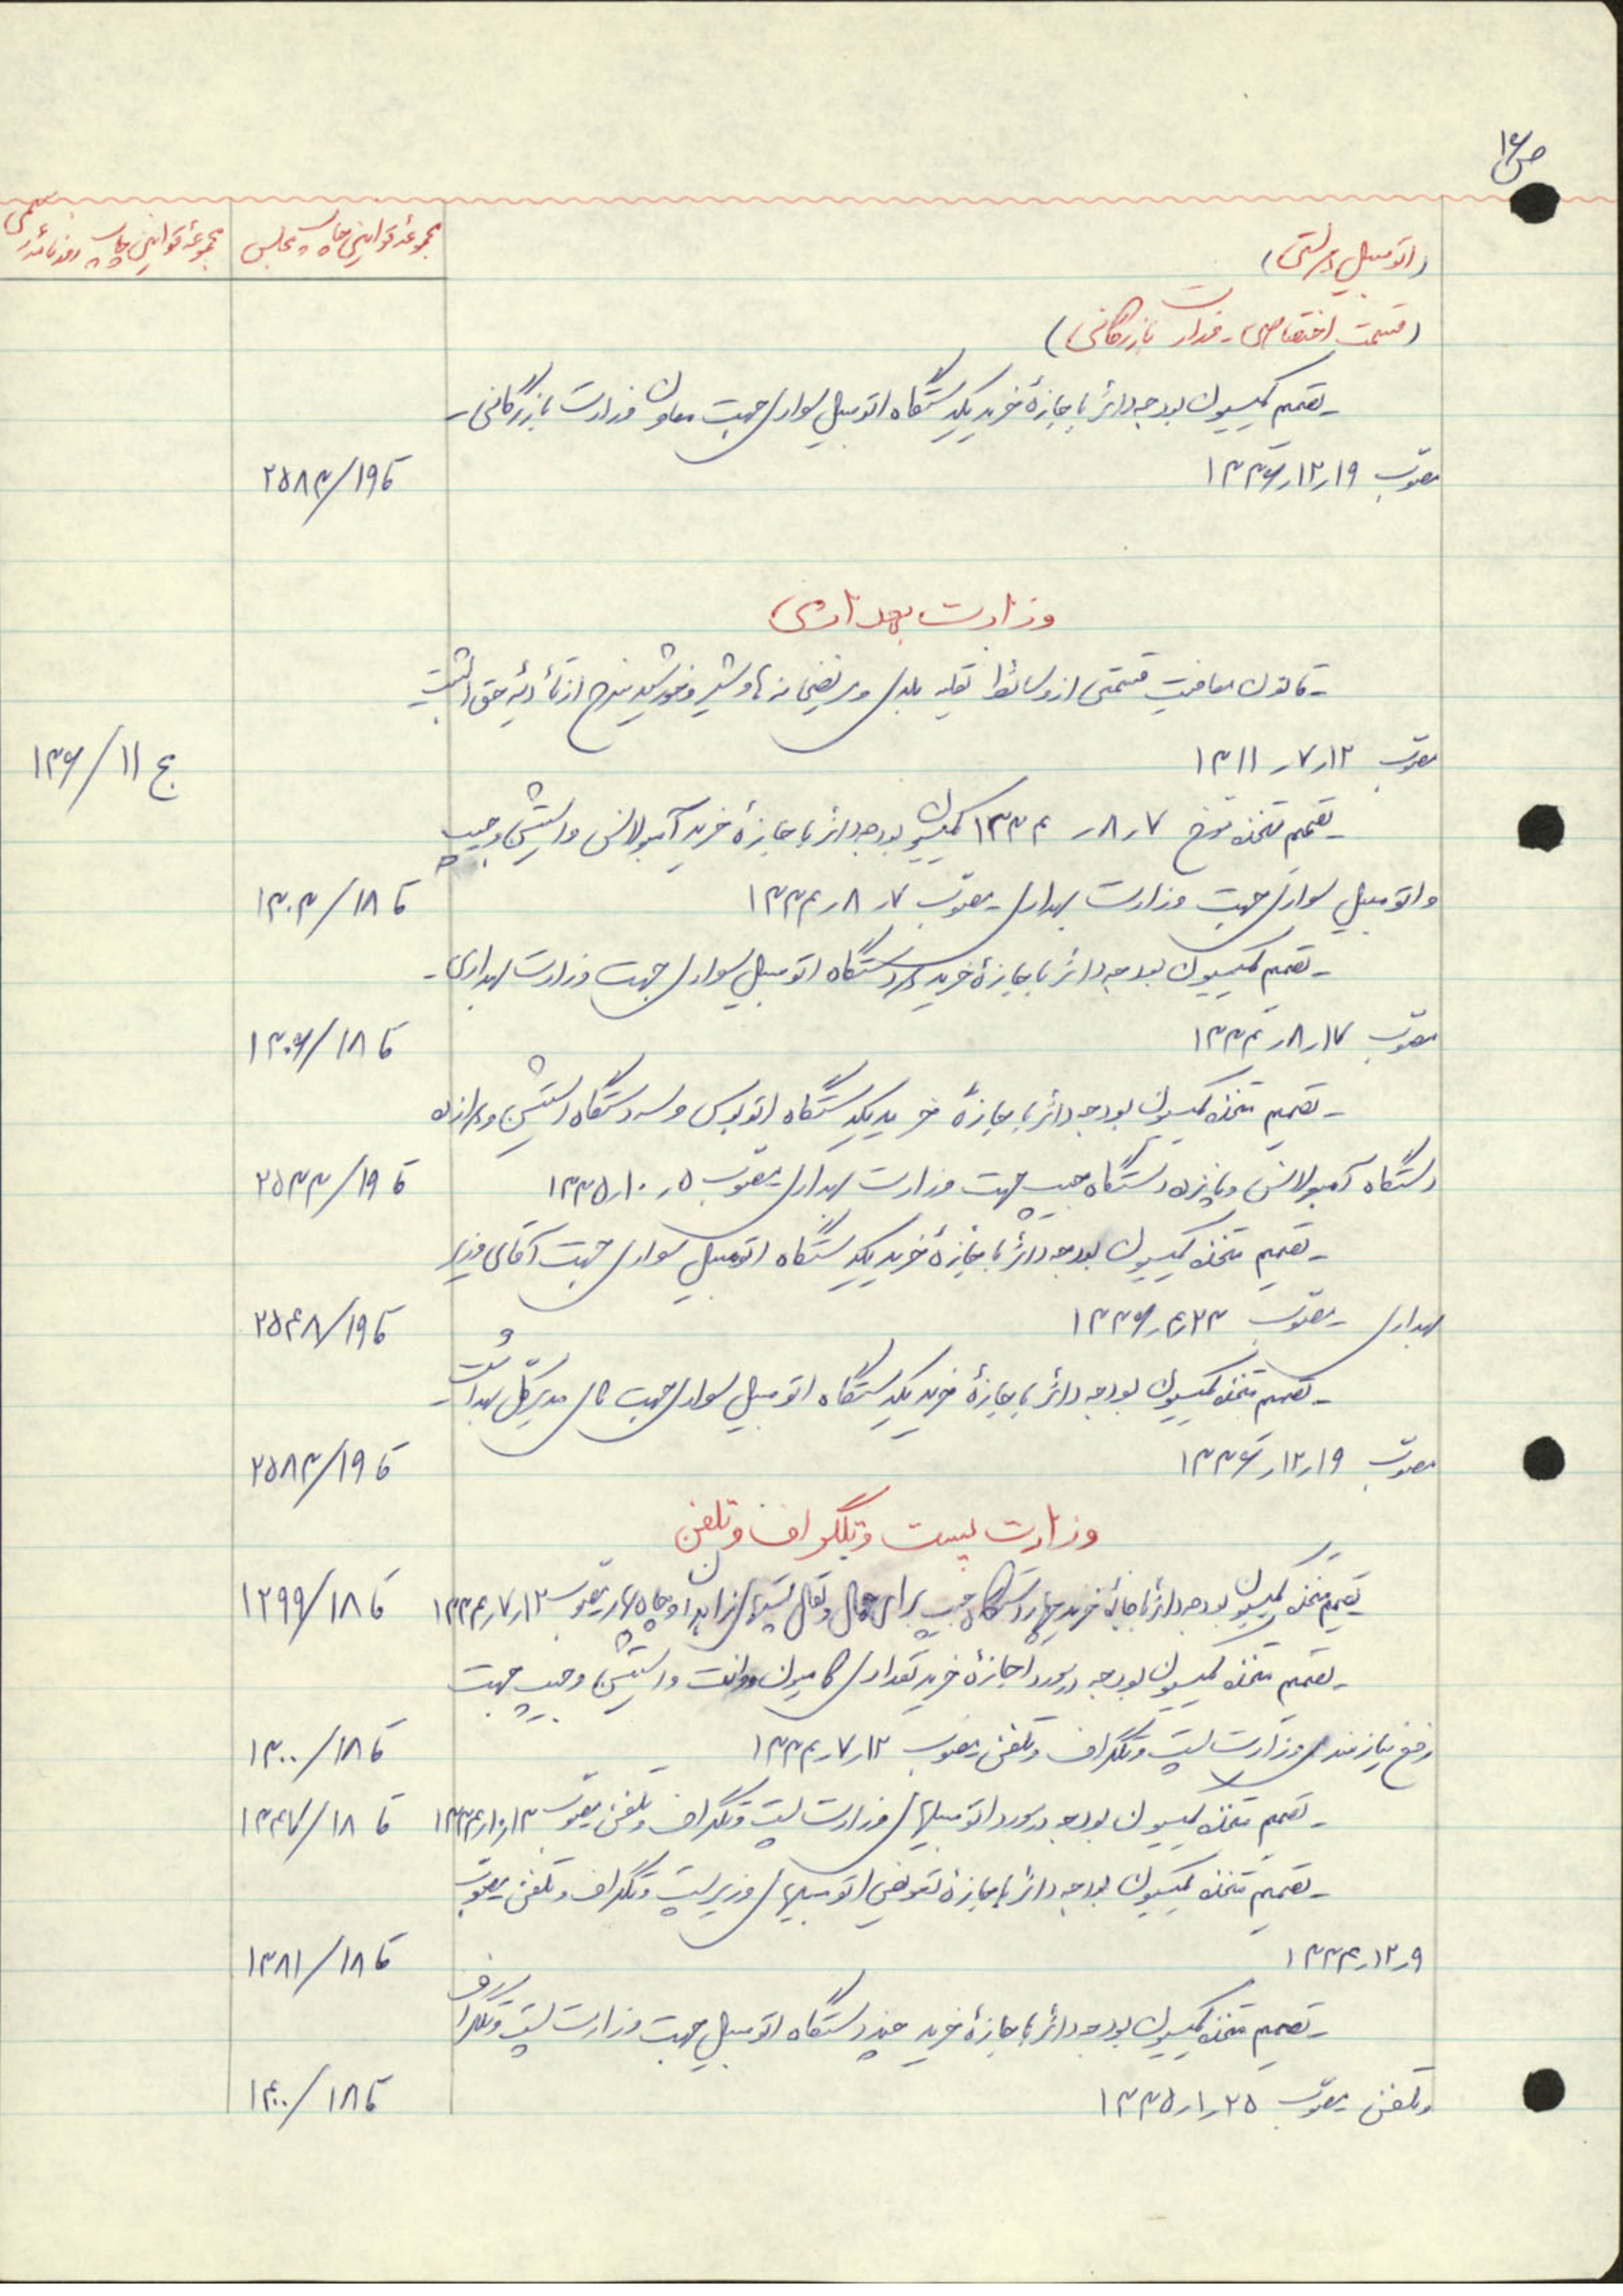 ص ۱۶
(اتومبیل دولتی)
مجموعه قوانین چاپ مجلس
مجموعه قوانین چاپ روزنامه رسمی
(قسمت اختصاصی - وزارت بازرگانی)
- تصمیم کمیسیون بودجه دائر باجازهٔ خرید یکدستگاه اتومبیل سواری جهت معاون وزارت بازرگانی -
مصوّب ۱۹ر۱۲ر۱۳۳۶ قا ۱۹/۲۵۸۳
وزارت بهداری
- قانون معافیت قسمتی از وسائط نقلیه بلدی و مریضخانه‌ها و شیر و خورشید سرخ از تأدیهٔ حق الثبت
مصوّب ۱۲ر۷ر۱۳۱۱ ج ۱۱/۱۳۶
- تصمیم متخذه مورخ ۷ر۸ر۱۳۳۴ کمیسیون بودجه دائر باجازهٔ خرید آمبولانس و استیشن و جیپ
و اتومبیل سواری جهت وزارت بهداری - مصوّب ۷ر۸ر۱۳۳۴ قا ۱۸/۱۳۰۳
- تصمیم کمیسیون بودجه دائر باجازهٔ خرید دو دستگاه اتومبیل سواری جهت وزارت بهداری -
مصوّب ۱۷ر۸ر۱۳۳۴ قا ۱۸/۱۳۰۶
- تصمیم متخذه کمیسیون بودجه دائر باجازهٔ خرید یکدستگاه اتوبوس و سه دستگاه استیشن و دوازده
دستگاه آمبولانس و پانزده دستگاه جیپ جهت وزارت بهداری - مصوّب ۵ر۱۰ر۱۳۳۵ قا ۱۹/۲۵۳۳
- تصمیم متخذه کمیسیون بودجه دائر باجازهٔ خرید یکدستگاه اتومبیل سواری جهت آقای وزیر
بهداری - مصوّب ۲۳ر۴ر۱۳۳۶ قا ۱۹/۲۵۴۸
- تصمیم متخذه کمیسیون بودجه دائر باجازهٔ خرید یکدستگاه اتومبیل سواری جهت مدیر کل بهداشت -
مصوّب ۱۹ر۱۲ر۱۳۳۶ قا ۱۹/۲۵۸۳
وزارت پست و تلگراف و تلفن
- تصمیم متخذه کمیسیون بودجه دائر باجازهٔ خرید چهار دستگاه جیپ برای حمل و نقل پستهای زاهدان و چاه‌بهار - مصوّب ۱۲ر۷ر۱۳۳۴ قا ۱۸/۱۲۹۹
- تصمیم متخذه کمیسیون بودجه در مورد اجازهٔ خرید تعدادی کامیون و وانت و استیشن و جیپ جهت
رفع نیازمندی وزارت پست و تلگراف و تلفن مصوّب ۱۲ر۷ر۱۳۳۴ قا ۱۸/۱۳۰۰
- تصمیم متخذه کمیسیون بودجه در مورد اتومبیلهای وزارت پست و تلگراف و تلفن مصوّب ۱۳ر۱۰ر۱۳۳۴ قا ۱۸/۱۳۴۷
- تصمیم متخذه کمیسیون بودجه دائر باجازهٔ تعویض اتومبیلهای وزیر پست و تلگراف و تلفن مصوّب
۹ر۱۲ر۱۳۳۴ قا ۱۸/۱۳۸۱
- تصمیم متخذه کمیسیون بودجه دائر باجازهٔ خرید چند دستگاه اتومبیل جهت وزارت پست و تلگراف
و تلفن مصوّب ۲۵ر۱ر۱۳۳۵ قا ۱۸/۱۴۰۰